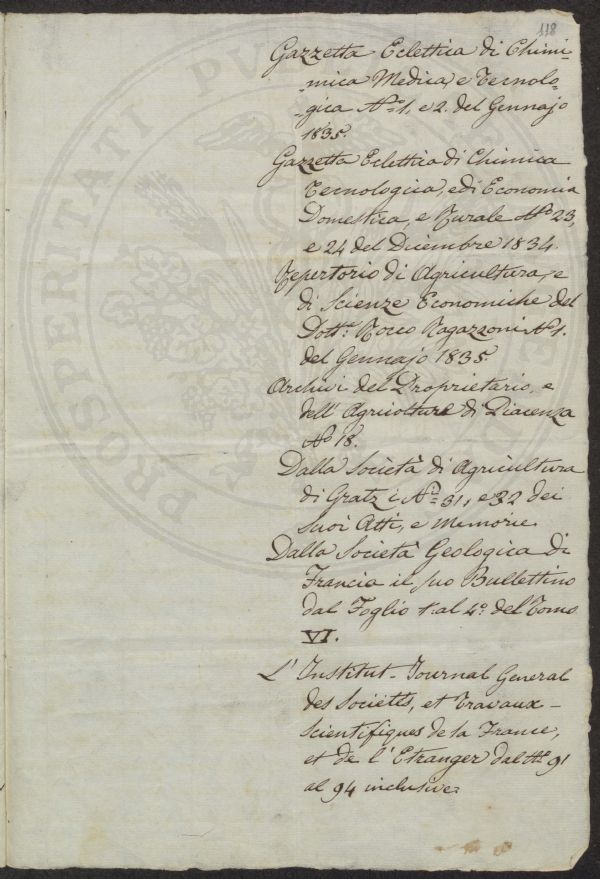 118
Gazzetta Eclettica di Chimi-
-mica Medica, e Tecnolo-
-gica N.° 1. e 2. del Gennajo
1835.
Gazzetta Eclettica di Chimica
Tecnologica, e di Economia
Domestica, e Rurale N.° 23,
e 24 del Dicembre 1834.
Repertorio di Agricultura, e
di Scienze Economiche del
Dott.r Rocco Ragazzoni N.° 1.
del Gennajo 1835
Archivi del Proprietario, e
dell'Agricolture di Piacenza
N.° 18.
Dalla Società di Agricultura
di Gratz i N.° 31, e 32 dei
suoi Atti, e Memorie
Dalla Società Geologica di
Francia il suo Bullettino
dal Foglio 1. al 4.° del Tomo
VI.
L'Institut-Journal General
des Sociétés, et Travaux-
Scientifiques de la France,
et de l'Etranger dal N.° 91
al 94 inclusive
PROSPERITATI PUBLICAE